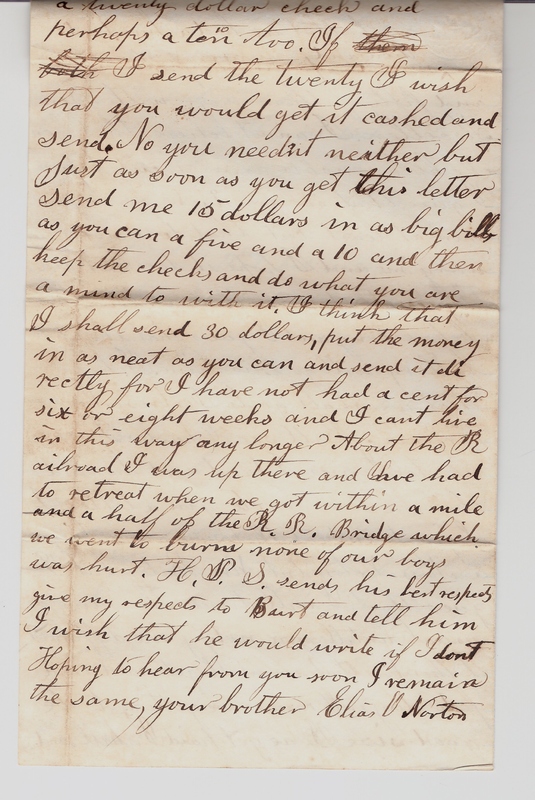 a twenty dollar check and
perhaps a ten too. If them
both I send the twenty I wish
that you would get it cashed and
send. No you needn't neither but
just as soon as you get this letter
send me 15 dollars in as big bills
as you can a five and a 10 and then
keep the checks and do what you are
a mind to with it. I think that
I shall send 30 dollars, put the money
in as neat as you can and send it di
rectly for I have not had a cent for
six or eight weeks and I cant live
in this way any longer About the R
ailroad I was up there and we had
to retreat when we got within a mile
and a half of the R. R. Bridge which
we went to burn none of our boys
was hurt. H. P. S. sends his best respects
give my respects to Burt and tell him
I wish that he would write if I dont
Hoping to hear from you soon I remain
the same, your brother Elias V Norton